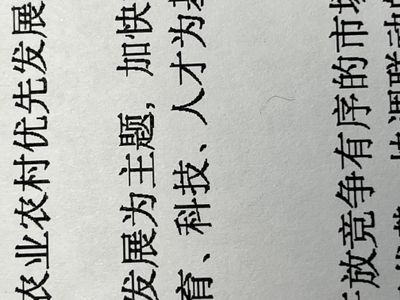 农业农村优先发展
发展为主题，加快
育、科技、人才为基
开放竞争有序的市场
优势、协调联动的